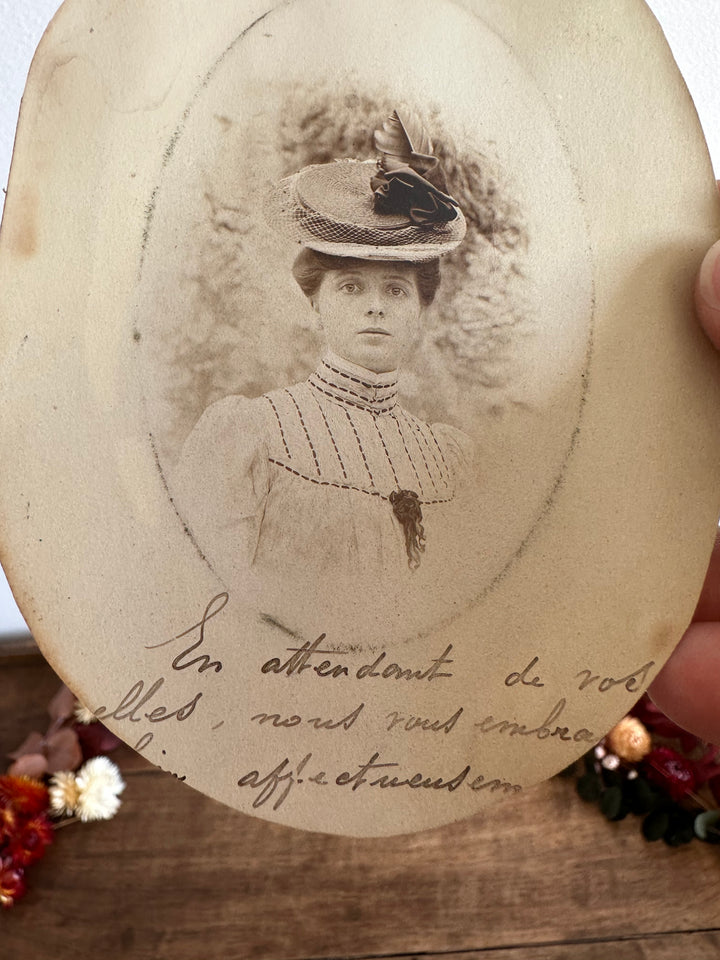 En attendant de vos
elles, nous vous embra
affectueusem